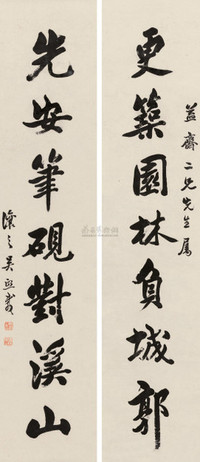 益齋二兄先生屬
更築園林負城郭
先安筆硯對溪山
讓之吳熙載